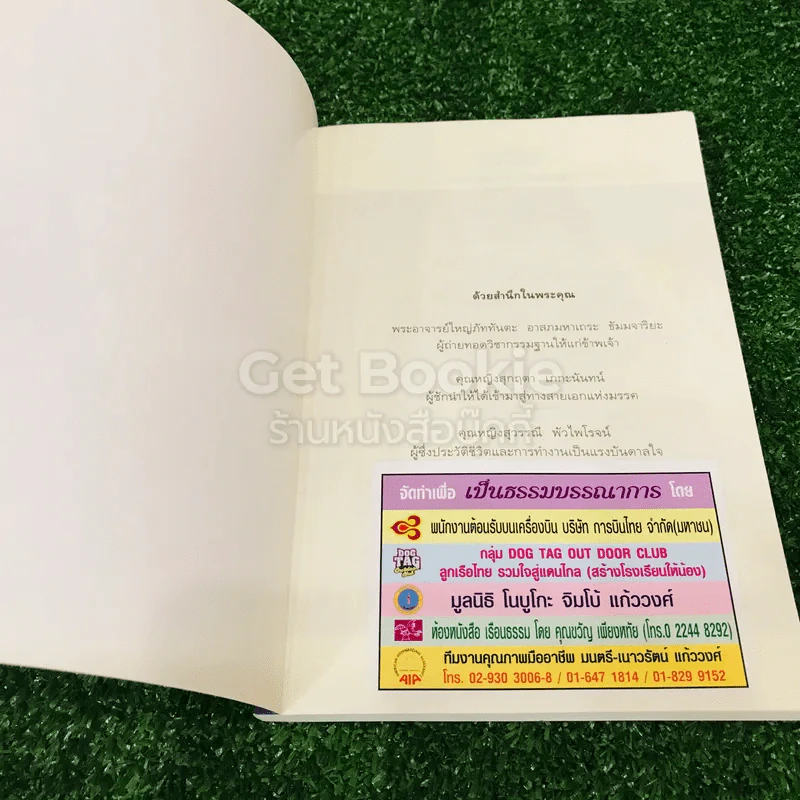 ด้วยสำนึกในพระคุณ
พระอาจารย์ใหญ่ภัททันตะ อาสภมหาเถระ ธัมมจาริยะ
ผู้ถ่ายทอดวิชากรรมฐานให้แก่ข้าพเจ้า
คุณหญิงสุกฤตา เภกะนันทน์
ผู้ชักนำให้ได้เข้ามาสู่ทางสายเอกแห่งมรรค
คุณหญิงสุวรรณี พัวไพโรจน์
ผู้ซึ่งประวัติชีวิตและการทำงานเป็นแรงบันดาลใจ
Get Bookie
ร้านหนังสือบุ๊กกี้
จัดทำเพื่อ เป็นธรรมบรรณาการ โดย
พนักงานต้อนรับบนเครื่องบิน บริษัท การบินไทย จำกัด(มหาชน)
DOG TAG
กลุ่ม DOG TAG OUT DOOR CLUB
ลูกเรือไทย รวมใจสู่แดนไกล (สร้างโรงเรียนให้น้อง)
มูลนิธิ โนบูโกะ จิมโบ้ แก้ววงศ์
ห้องหนังสือ เรือนธรรม โดย คุณขวัญ เพียงหทัย (โทร.0 2244 8292)
AIA
ทีมงานคุณภาพมืออาชีพ มนตรี-เนาวรัตน์ แก้ววงศ์
โทร. 02-930 3006-8 / 01-647 1814 / 01-829 9152